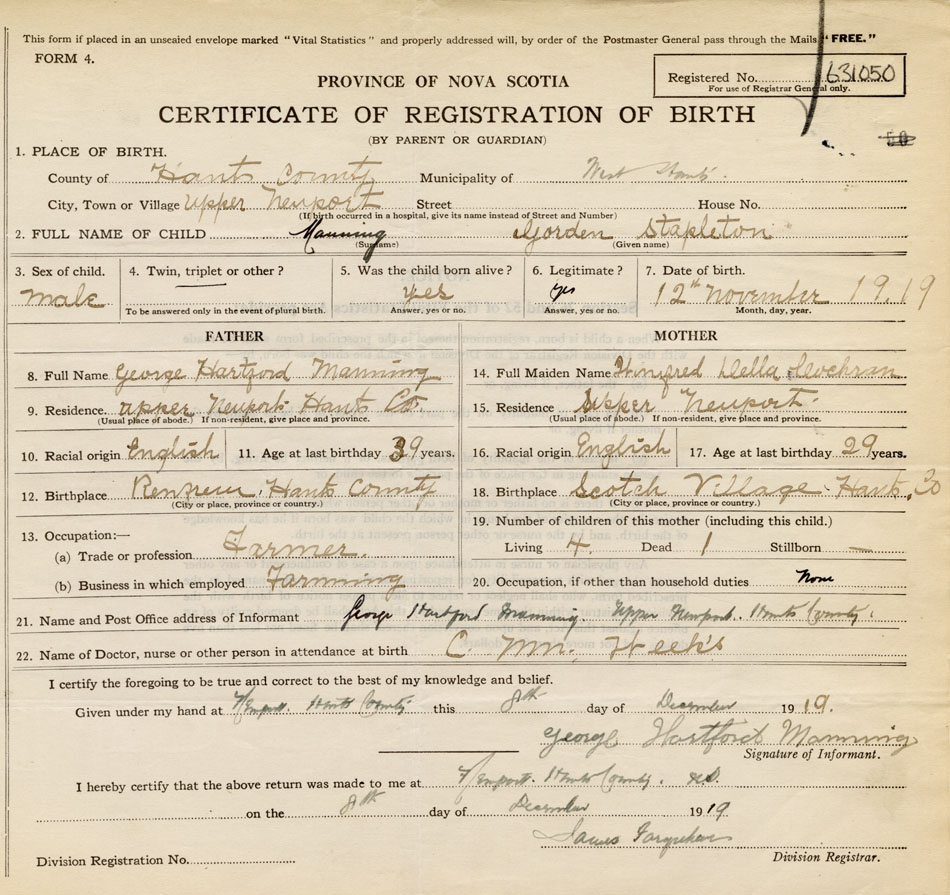 This form if placed in an unsealed envelope marked "Vital Statistics" and properly addressed will, by order of the Postmaster General pass through the Mails "FREE."
FORM 4.
Registered No. 631050
For use of Registrar General only.
PROVINCE OF NOVA SCOTIA
CERTIFICATE OF REGISTRATION OF BIRTH
(BY PARENT OR GUARDIAN)
1. PLACE OF BIRTH.
County of Hants County Municipality of West Hants
City, Town or Village Upper Neuport Street House No.
(If birth occurred in a hospital, give its name instead of Street and Number)
2. FULL NAME OF CHILD Manning Gorden Stapleton
(Surname) (Given name)
3. Sex of child. 4. Twin, triplet or other? 5. Was the child born alive? 6. Legitimate? 7. Date of birth.
male yes yes 12th November 1919
To be answered only in the event of plural birth. Answer, yes or no. Answer, yes or no. Month, day, year.
FATHER MOTHER
8. Full Name George Hartford Manning
14. Full Maiden Name Della
9. Residence. upper Neuport Hants Co.
15. Residence Upper Neuport
(Usual place of abode.) If non-resident, give place and province.
(Usual place of abode.) If non-resident, give place and province.
10. Racial origin English 11. Age at last birthday 39 years.
16. Racial origin English 17. Age at last birthday 29 years.
12. Birthplace Hants County
(City or place, province or country.)
18. Birthplace Scotch Village Hants,
(City or place, province or country.)
13. Occupation:—
(a) Trade or profession Farmer.
(b) Business in which employed Farming
19. Number of children of this mother (including this child.)
Living 4. Dead 1 Stillborn —
20. Occupation, if other than household duties None
21. Name and Post Office address of Informant George Hartford Manning. Upper Neuport. Hants County.
22. Name of Doctor, nurse or other person in attendance at birth C.
I certify the foregoing to be true and correct to the best of my knowledge and belief.
Given under my hand at Hants County this 8th day of December 1919.
George Hartford Manning
Signature of Informant.
I hereby certify that the above return was made to me at Hants County.
on the 8th day of December 1919
James
Division Registration No. Division Registrar.